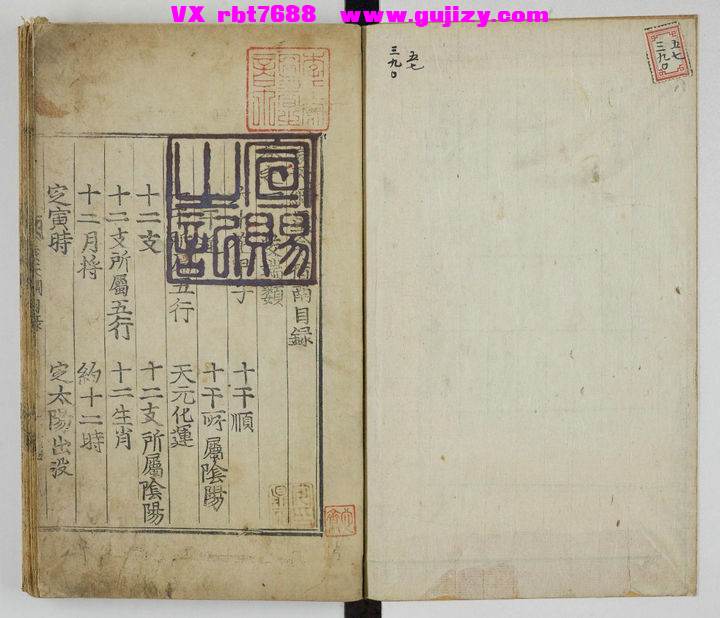 VX rbt7688 www.gujizy.com
五七
三九〇
五七
三九〇
宣賜之記
目錄
類
子 十干順
十干所屬陰陽
五行 天元化運
十二支 十二支所屬陰陽
十二支所屬五行 十二生肖
十二月將 約十二時
定寅時 定太陽出沒